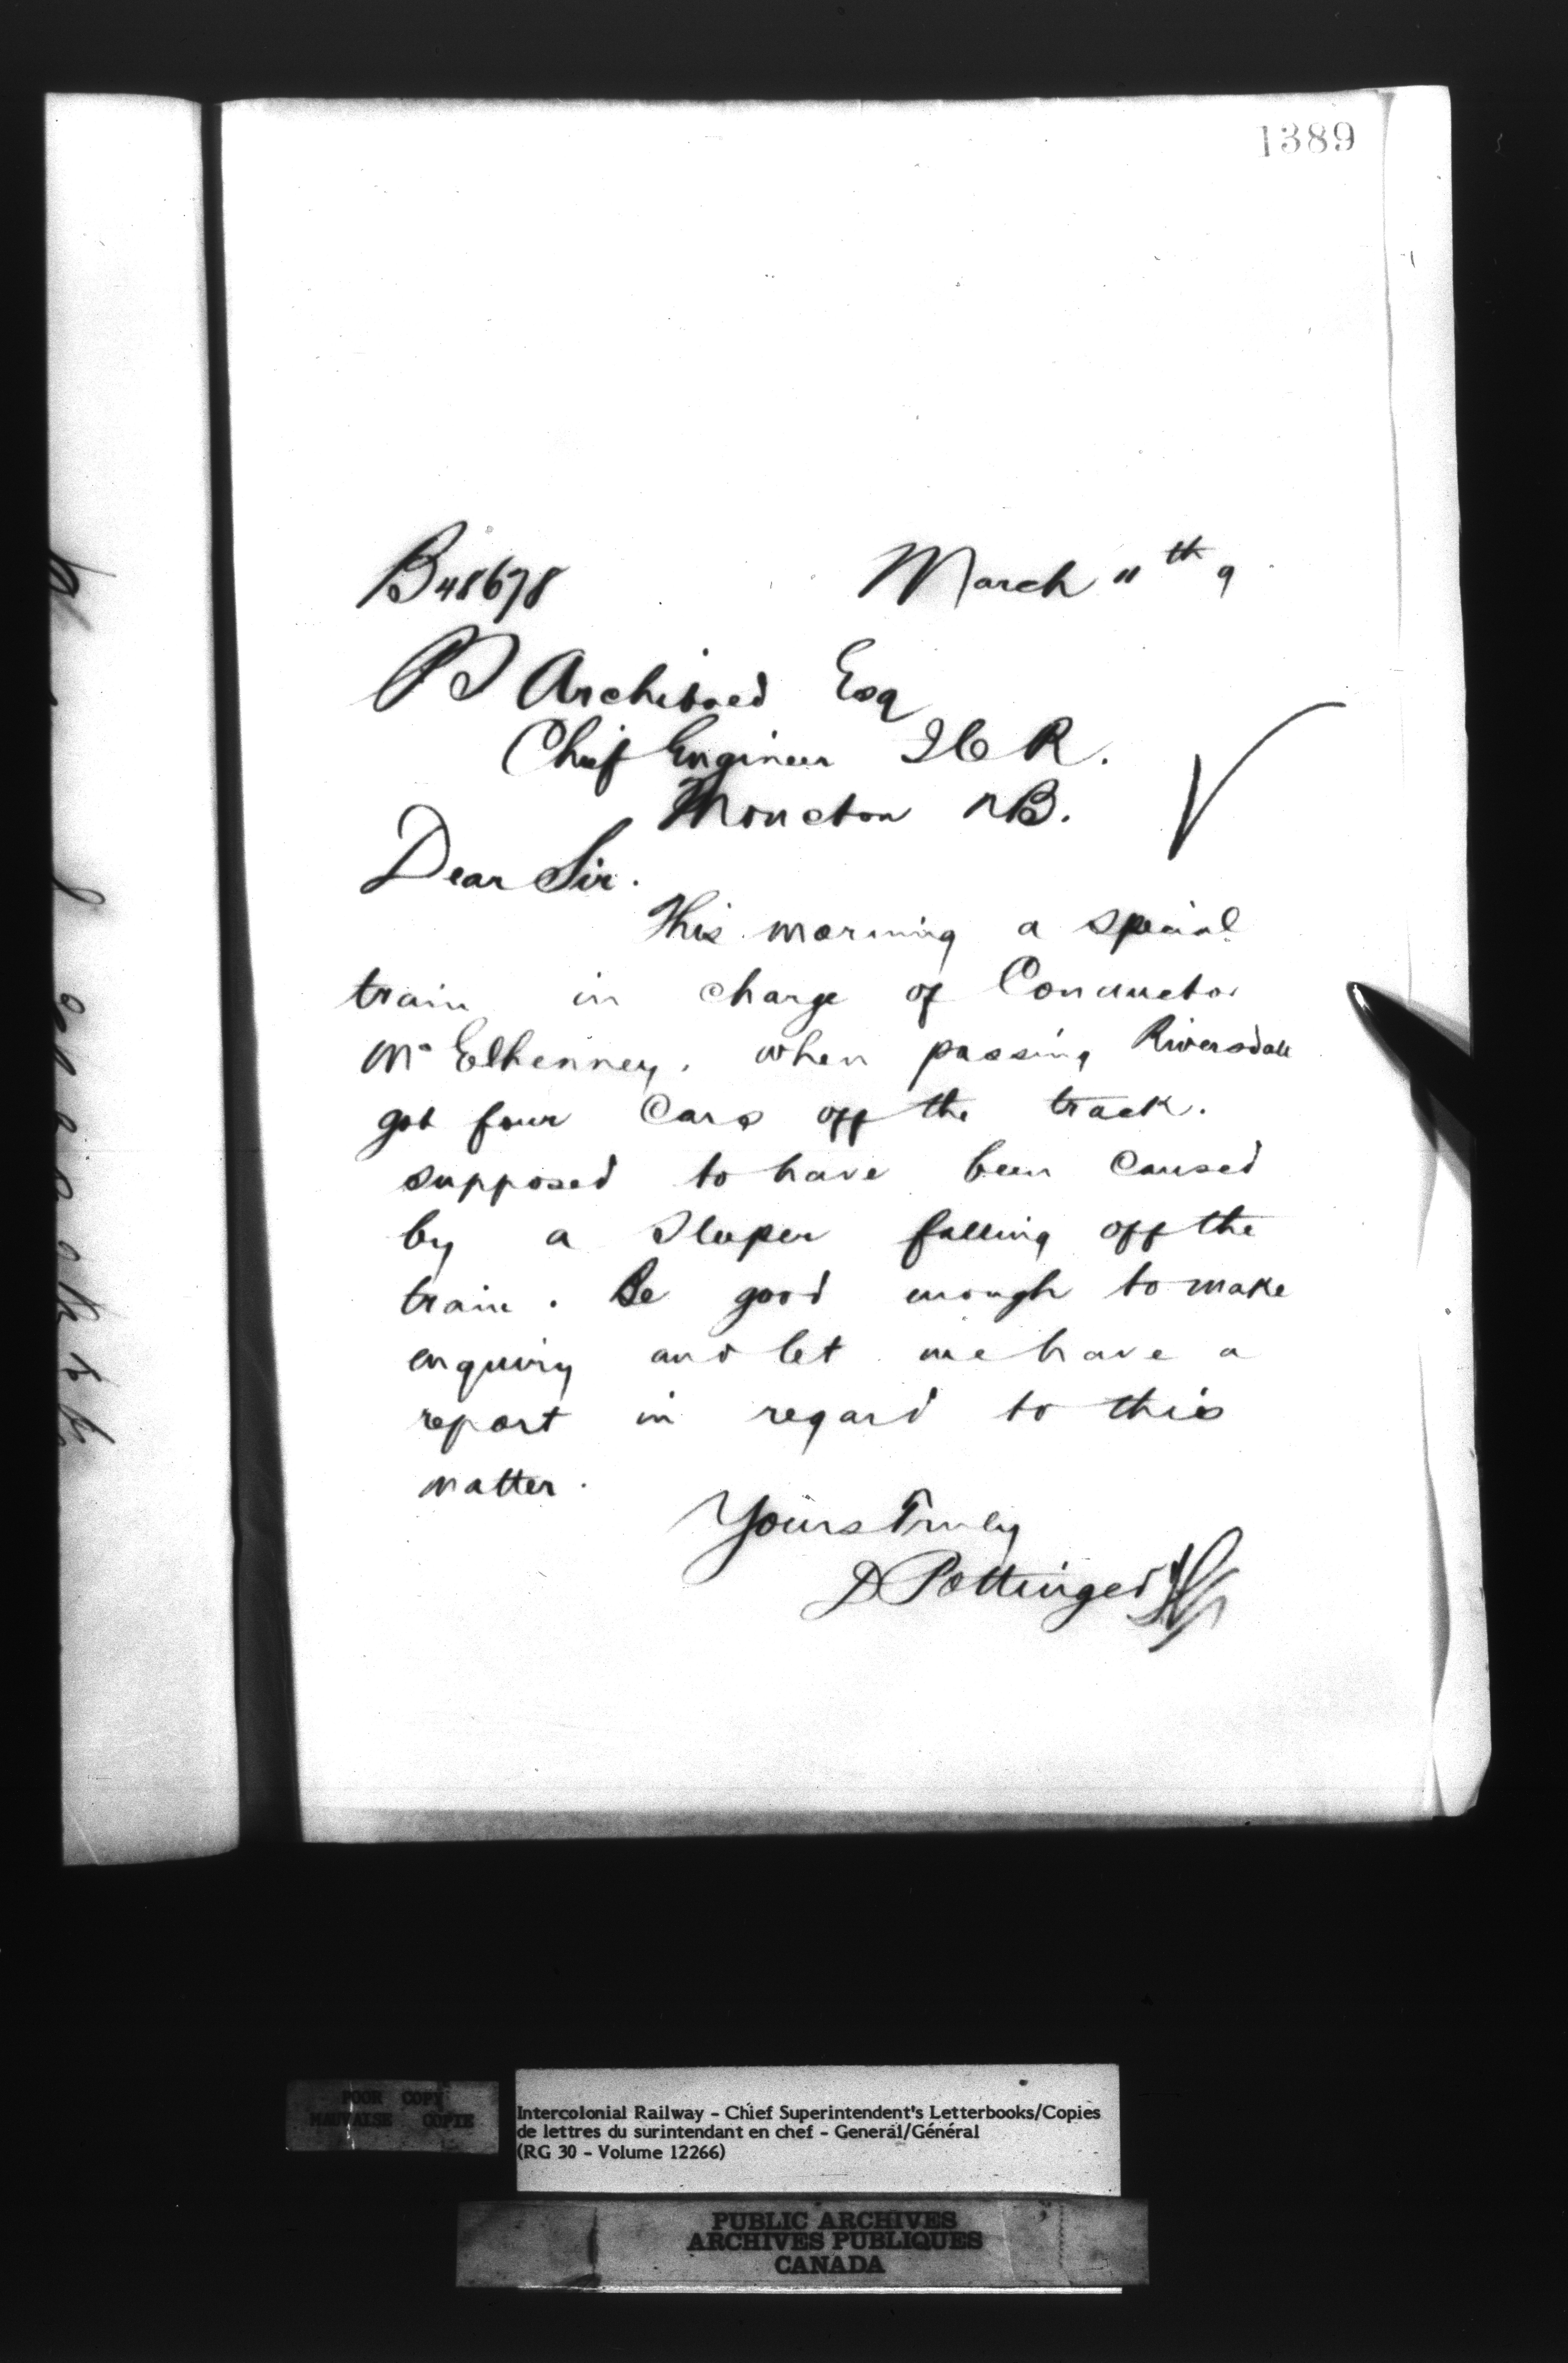 1389
B48678 March 11th 9
P S Archibald Esq
Chief Engineer I C R.
Moncton NB.
Dear Sir.
This morning a special
train in charge of Conductor
Mc Elhenney, when passing Riversdale
got four Cars off the track.
supposed to have been Caused
by a Sleeper falling off the
train. Be good enough to make
enquiry and let me have a
report in regard to this
matter.
Yours Truly
D Pottinger
POOR COPY
MAUVAISE COPIE
Intercolonial Railway - Chief Superintendent's Letterbooks/Copies
de lettres du surintendant en chef - General/Général
(RG 30 - Volume 12266)
PUBLIC ARCHIVES
ARCHIVES PUBLIQUES
CANADA